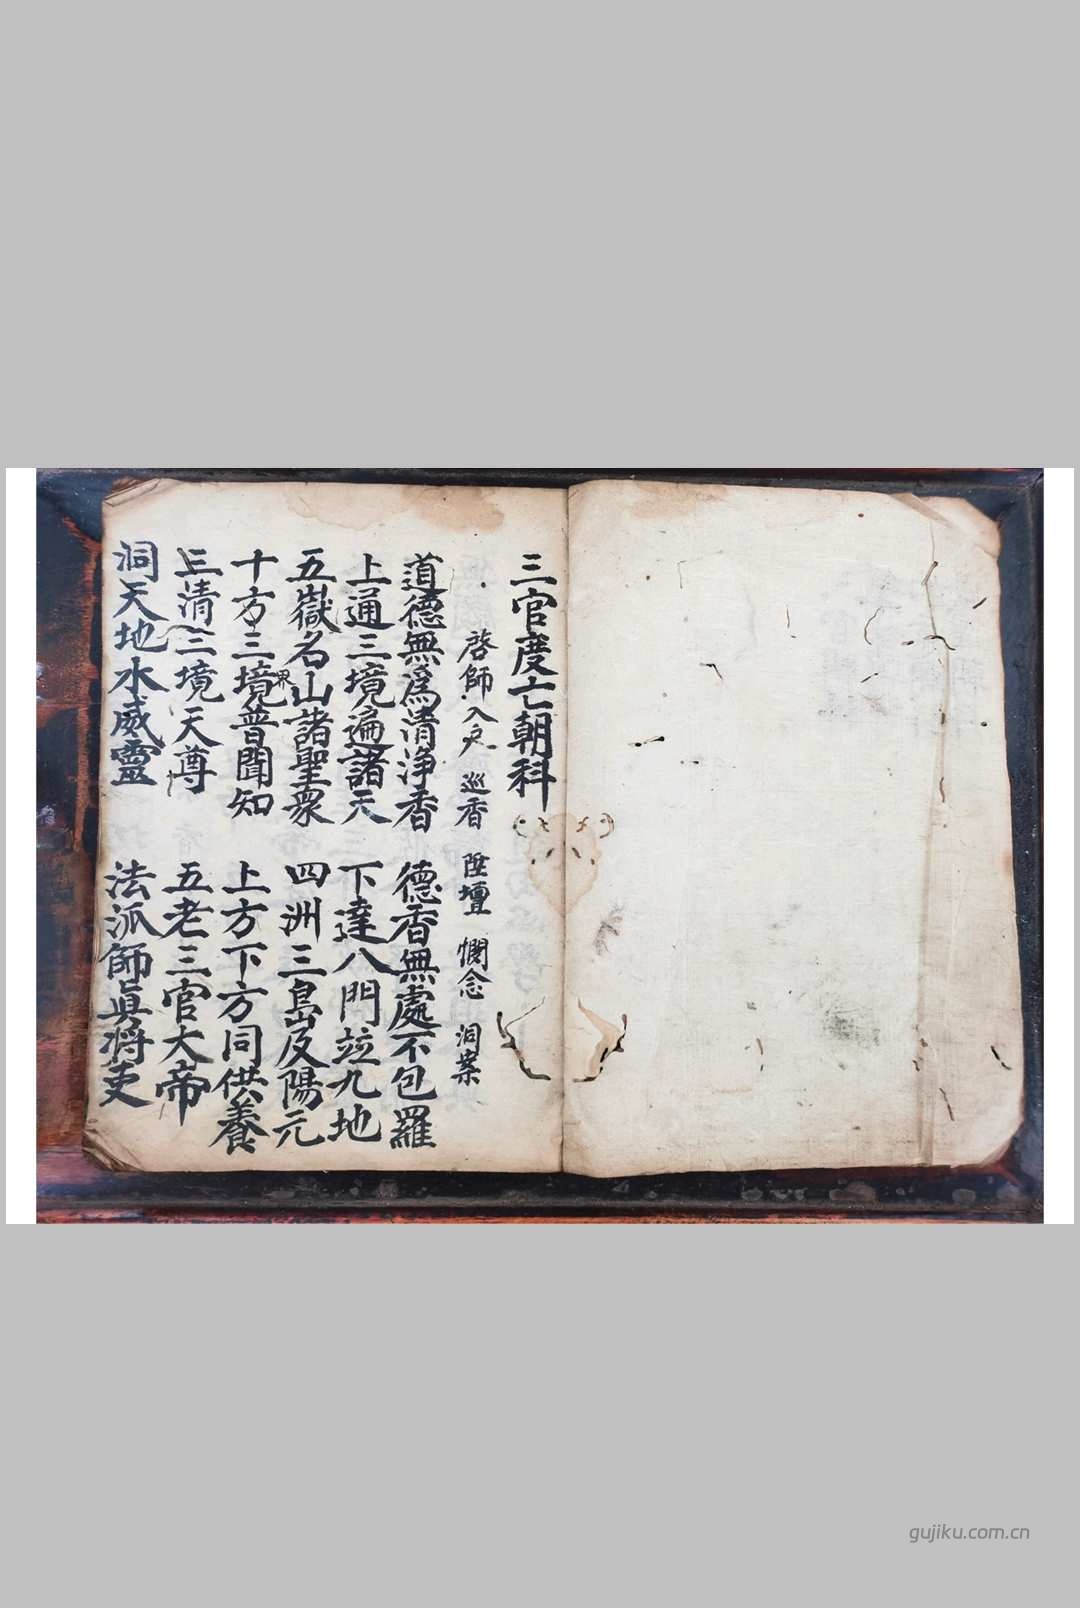 三官度亡朝科
啓師 入户 巡香 陞壇 憫念 洞案
道德無爲清淨香 德香無處不包羅
上通三境遍諸天 下達八門竝九地
五嶽名山諸聖衆 四洲三島及陽元
十方三境界普聞知 上方下方同供養
三清三境天尊 五老三官大帝
洞天地水威靈 法派師眞將吏
gujiku.com.cn